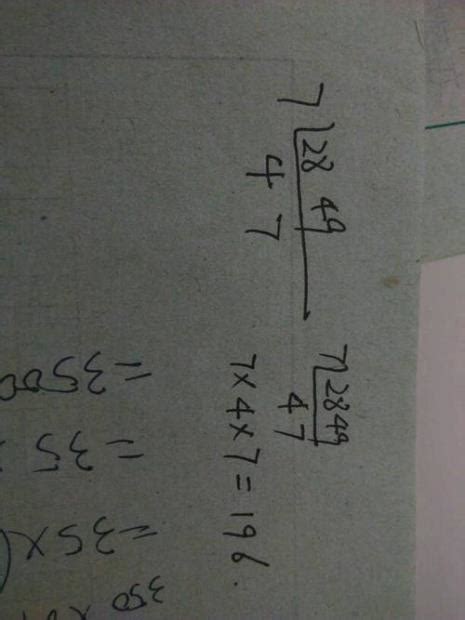 7 28 49
4 7
7 28 49
4 7
7×4×7=196.
=3500
=35
=35×(
350